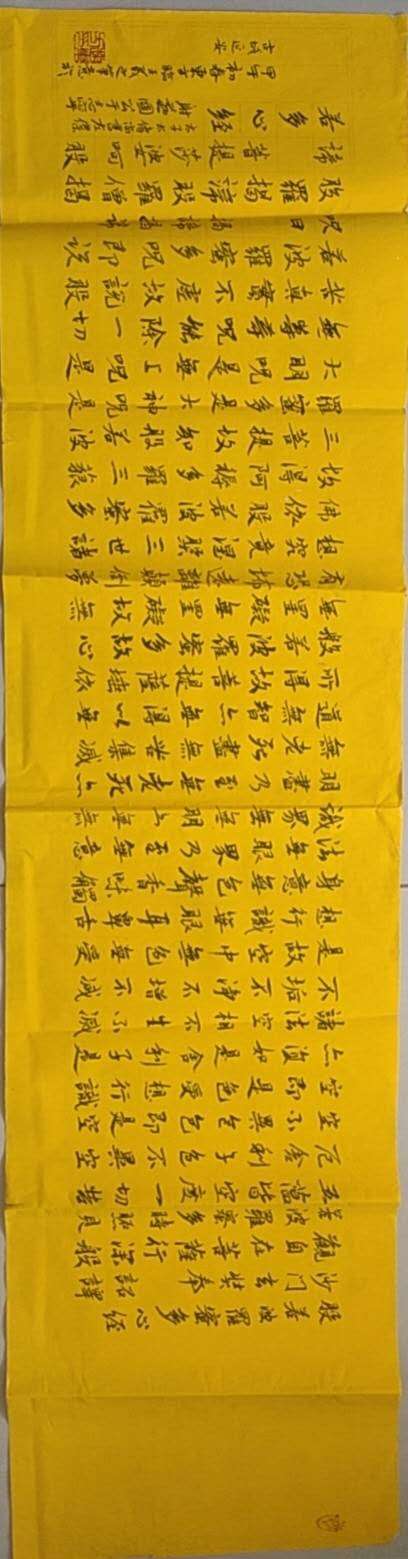 般若波羅蜜多心经
沙門玄奘奉詔譯
觀自在菩薩行深般
若波羅蜜多時照見
五蕴皆空度一切苦
厄舍利子色不異空
空不異色色即是空
空即是色受想行識
亦復如是舍利子是
諸法空相不生不滅
不垢不淨不增不減
是故空中無色無受
想行識無眼耳鼻舌
身意無色聲香味觸
法無眼界乃至無意
識界無無明亦無無
明盡乃至無老死亦
無老死盡無苦集滅
道無智亦無得以無
所得故菩提薩埵依
般若波羅蜜多故心
無罣礙無罣礙故無
有恐怖遠離顛倒夢
想究竟涅槃三世諸
佛依般若波羅蜜多
故得阿耨多羅三藐
三菩提故知般若波
羅蜜多是大神呪是
大明呪是無上呪是
無等等呪能除一切
苦真實不虚故說般
若波羅蜜多呪即说
呪曰揭諦揭諦
般羅揭諦般羅僧揭
諦菩提莎婆呵般
若多心经